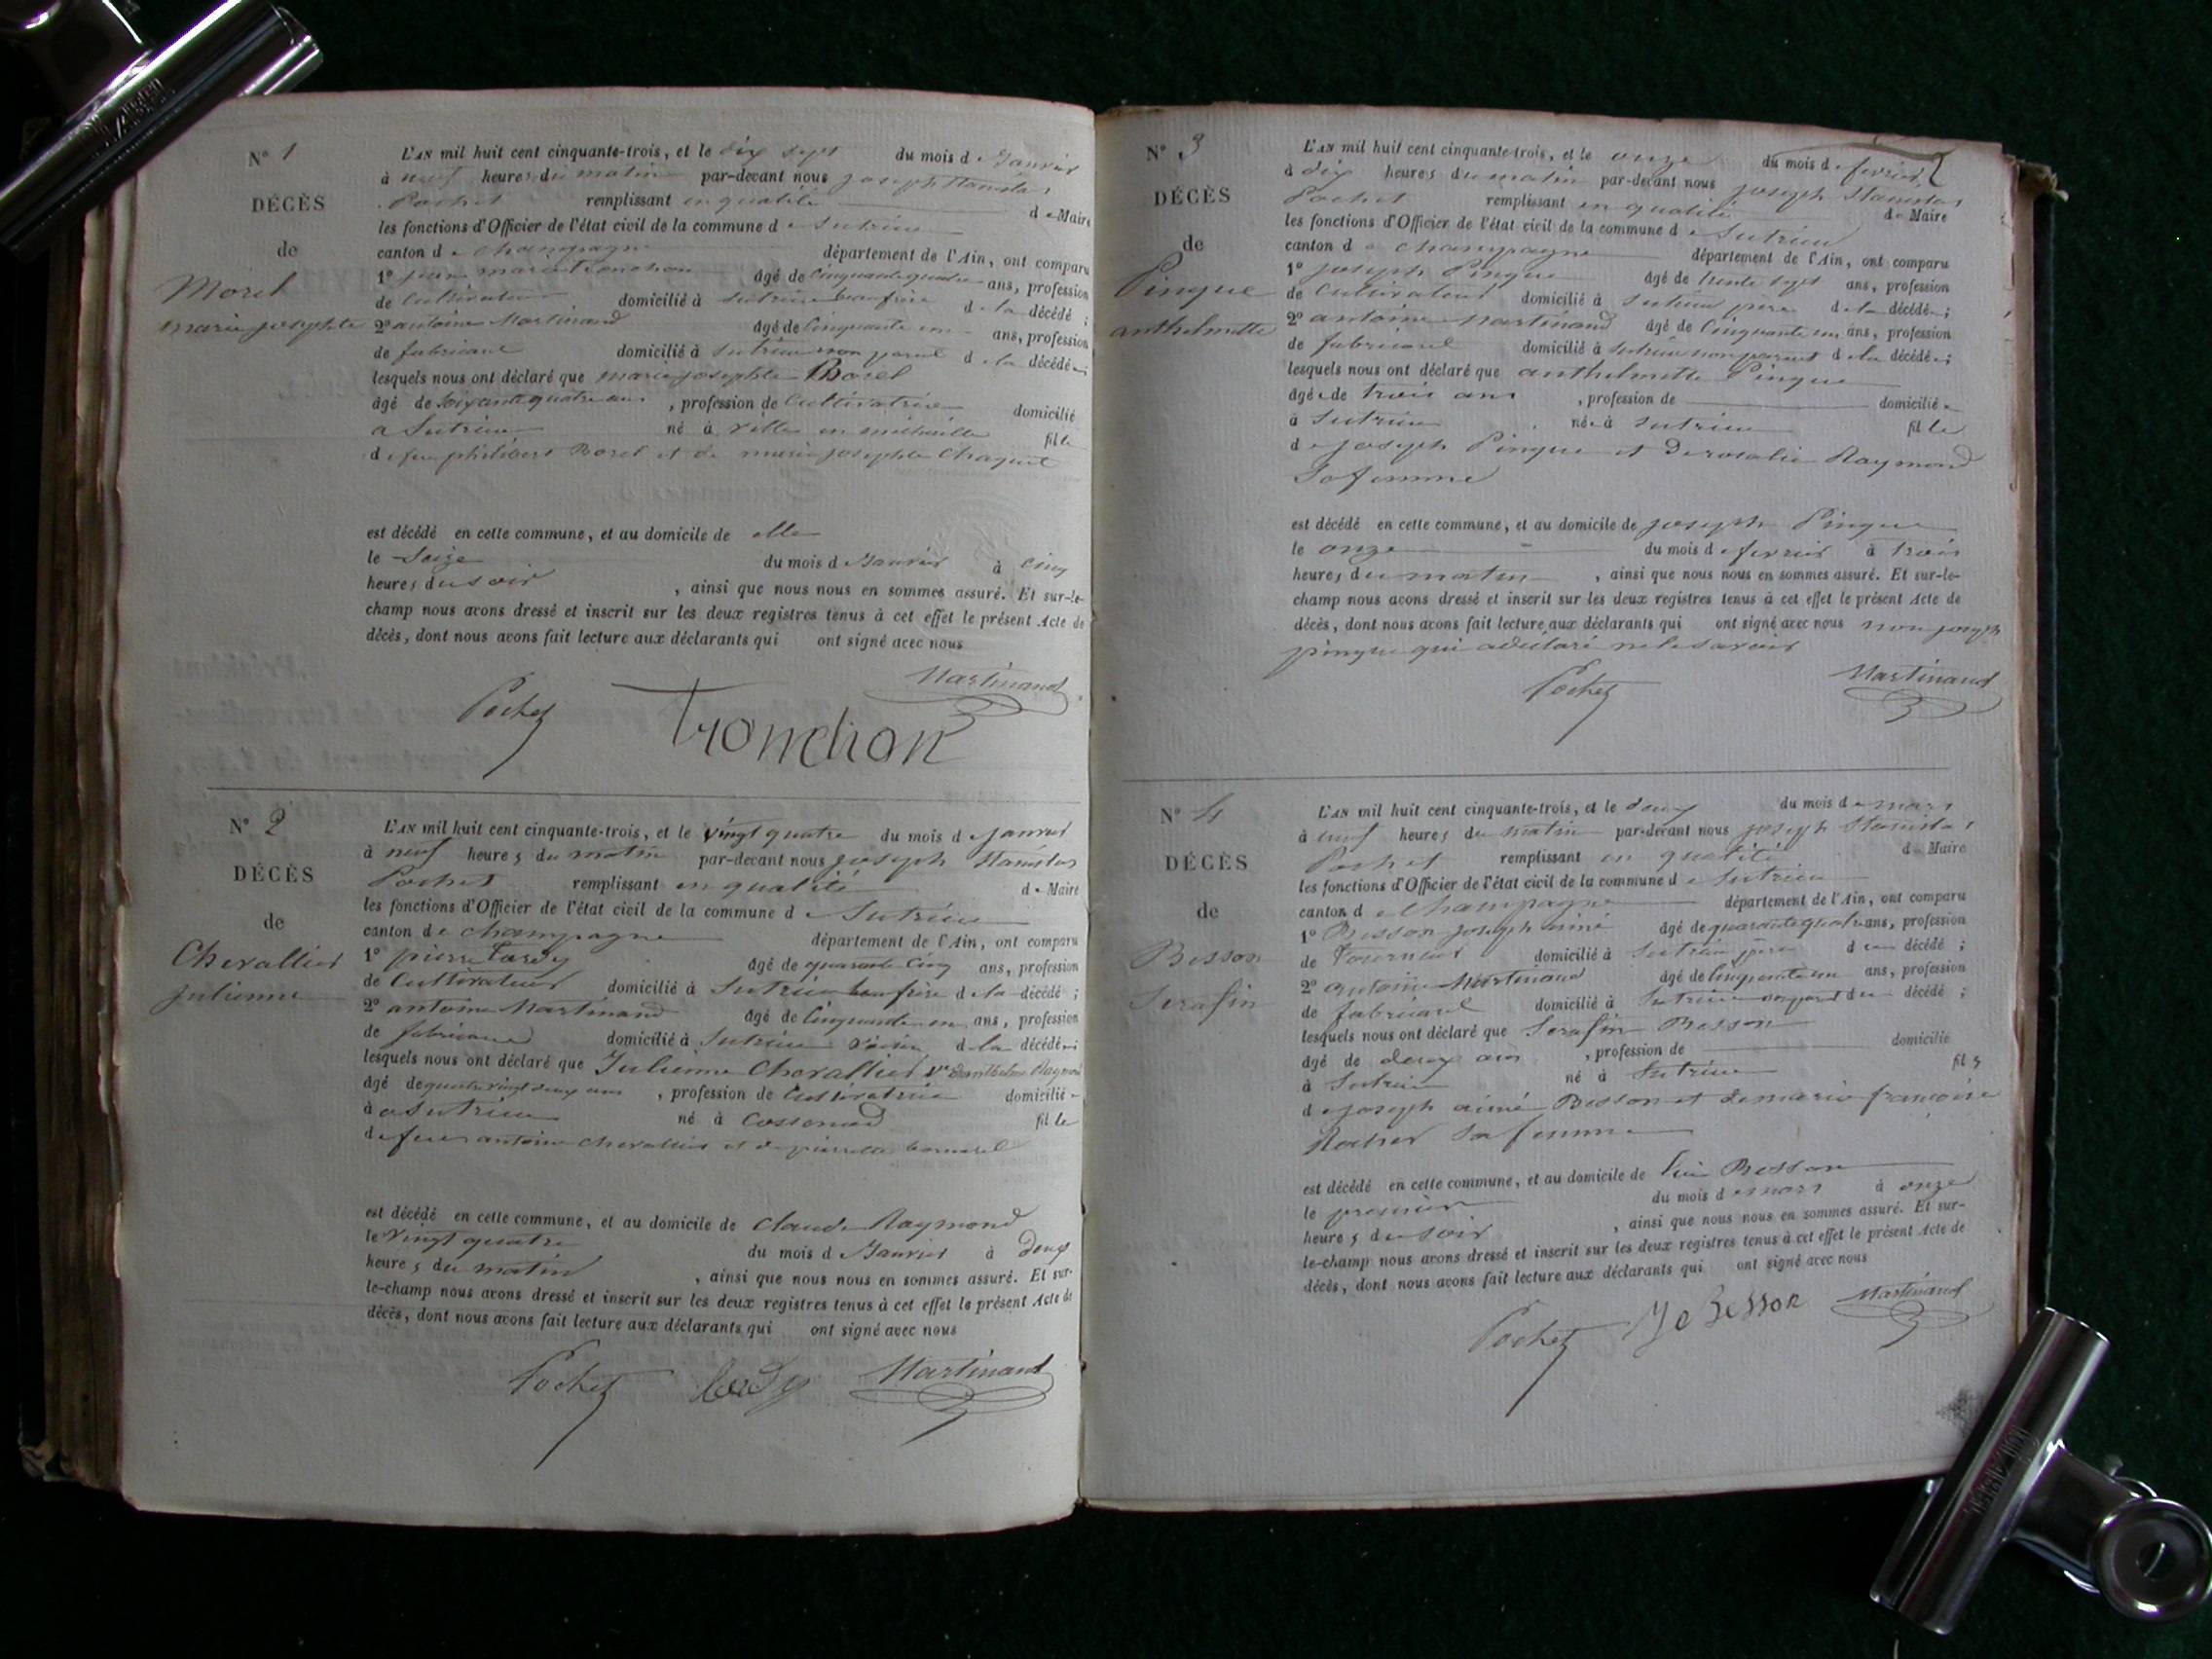 N° 1
DÉCÈS
de
Morel
marie josephte
L'AN mil huit cent cinquante-trois, et le dix sept du mois d e Janvier
à neuf heures du matin par-devant nous joseph Stanislas
Pochet remplissant en qualité d e Maire
les fonctions d'Officier de l'état civil de la commune d e Sutrieu
canton d e champagne département de l'Ain, ont comparu
1° jean marie tronchon âgé de cinquante quatre ans, profession
de Cultivateur domicilié à Sutrieu beau frère d e la décédé ;
2° antoine Martinand âgé de Cinquante un ans, profession
de fabricant domicilié à Sutrieu non parent d e la décédé e ;
lesquels nous ont déclaré que marie josephte Borel
âgé de soixante quatre ans , profession de Cultivatrice domicilié
a Sutrieu né à en fil le
d e feu philibert Borel et de marie josephte
est décédé en cette commune, et au domicile de elle
le Seize du mois d e Janvier à cinq
heures du soir , ainsi que nous nous en sommes assuré. Et sur-le-
champ nous avons dressé et inscrit sur les deux registres tenus à cet effet le présent Acte de
décès, dont nous avons fait lecture aux déclarants qui ont signé avec nous
Martinand
Pochet tronchon
N° 2
DÉCÈS
de
Chevallier
Julienne
L'AN mil huit cent cinquante-trois, et le vingt quatre du mois d e janvier
à neuf heures du matin par-devant nous joseph Stanislas
Pochet remplissant en qualité d e Maire
les fonctions d'Officier de l'état civil de la commune d e Sutrieu
canton d e champagne département de l'Ain, ont comparu
1° pierre Tardy âgé de quarante Cinq ans, profession
de Cultivateur domicilié à Sutrieu beau frère d e la décédé ;
2° antoine Martinand âgé de Cinquante un ans, profession
de fabricant domicilié à Sutrieu voisin d e la décédé e ;
lesquels nous ont déclaré que Julienne Chevallier Ve d'anthelme Raymond
âgé de quatre vingt deux ans , profession de Cultivatrice domicilié e
à a Sutrieu né à fil le
d e feu antoine chevallier et de pierrette
est décédé en cette commune, et au domicile de claude Raymond
le vingt quatre du mois d e Janvier à deux
heures du matin , ainsi que nous nous en sommes assuré. Et sur-
le-champ nous avons dressé et inscrit sur les deux registres tenus à cet effet le présent Acte de
décès, dont nous avons fait lecture aux déclarants qui ont signé avec nous
Pochet Martinand
N° 3
DÉCÈS
de
Pingue
anthelmette
L'AN mil huit cent cinquante-trois, et le onze du mois d e février
à dix heures du matin par-devant nous joseph Stanislas
Pochet remplissant en qualité d e Maire
les fonctions d'Officier de l'état civil de la commune d e Sutrieu
canton d e champagne département de l'Ain, ont comparu
1° joseph Pingue âgé de trente sept ans, profession
de Cultivateur domicilié à Sutrieu père d e la décédé e ;
2° antoine Martinand âgé de Cinquante un ans, profession
de fabricant domicilié à Sutrieu non parent d e la décédé e ;
lesquels nous ont déclaré que anthelmette Pingue
âgé e de trois ans , profession de domicilié e
à Sutrieu né e à Sutrieu fil le
d e joseph Pingue et De rosalie Raymond
Sa femme
est décédé en cette commune, et au domicile de joseph Pingue
le onze du mois d e fevrier à trois
heures du matin , ainsi que nous nous en sommes assuré. Et sur-le-
champ nous avons dressé et inscrit sur les deux registres tenus à cet effet le présent Acte de
décès, dont nous avons fait lecture aux déclarants qui ont signé avec nous non joseph
pingue qui a déclaré ne le savoir
Pochet Martinand
N° 4
DÉCÈS
de
Besson
Serafin
L'AN mil huit cent cinquante-trois, et le deux du mois d e mars
à neuf heures du matin par-devant nous joseph Stanislas
Pochet remplissant en qualité d e Maire
les fonctions d'Officier de l'état civil de la commune d e Sutrieu
canton d e champagne département de l'Ain, ont comparu
1° Besson joseph aimé âgé de quarante quatre ans, profession
de Tourneur domicilié à Sutrieu père d u décédé ;
2° antoine Martinand âgé de Cinquante un ans, profession
de fabricant domicilié à Sutrieu non parent d u décédé ;
lesquels nous ont déclaré que Serafin Besson
âgé de deux ans , profession de domicilié
à Sutrieu né à Sutrieu fil s
d e joseph aimé Besson et de marie françoise
Rochet Sa femme
est décédé en cette commune, et au domicile de Besson
le premier du mois d e mars à onze
heures du soir , ainsi que nous nous en sommes assuré. Et sur-
le-champ nous avons dressé et inscrit sur les deux registres tenus à cet effet le présent Acte de
décès, dont nous avons fait lecture aux déclarants qui ont signé avec nous
Pochet Besson Martinand